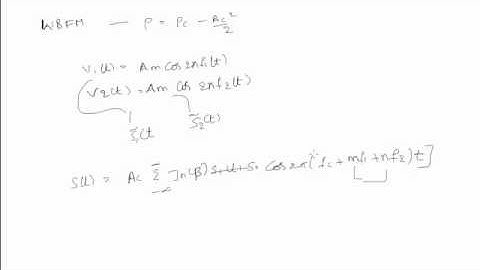 WBFM — P = Pc - Ac²/2
V₁(t) = Am Cos 2πf₁(t)
V₂(t) = Am Cos 2πf₂(t)
ξ₁(t ξ₂(t)
S(t) = Ac Σ Jn(β) Cos 2π(fc + mf₁ + nf₂)t]
-∞